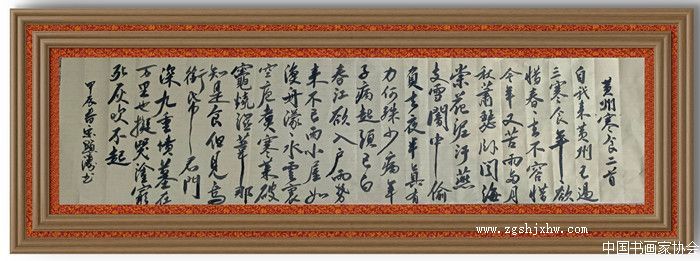 黄州寒食二首
自我来黄州已过
三寒食年々欲
惜春々去不容惜
今年又苦雨两月
秋萧瑟卧闻海
棠花泥污燕
支雪闇中偷
负去夜半真有
力何殊少病年
子病起须已白
春江欲入户雨势
来不已雨小屋如
渔舟濛々水雲裏
空庖煮寒菜破
竈烧湿苇那
知是食但见乌
衔帋君門
深九重坟墓在
万里也拟哭塗窮
死灰吹不起
甲辰春书
www.zgshjxhw.com
中国书画家协会